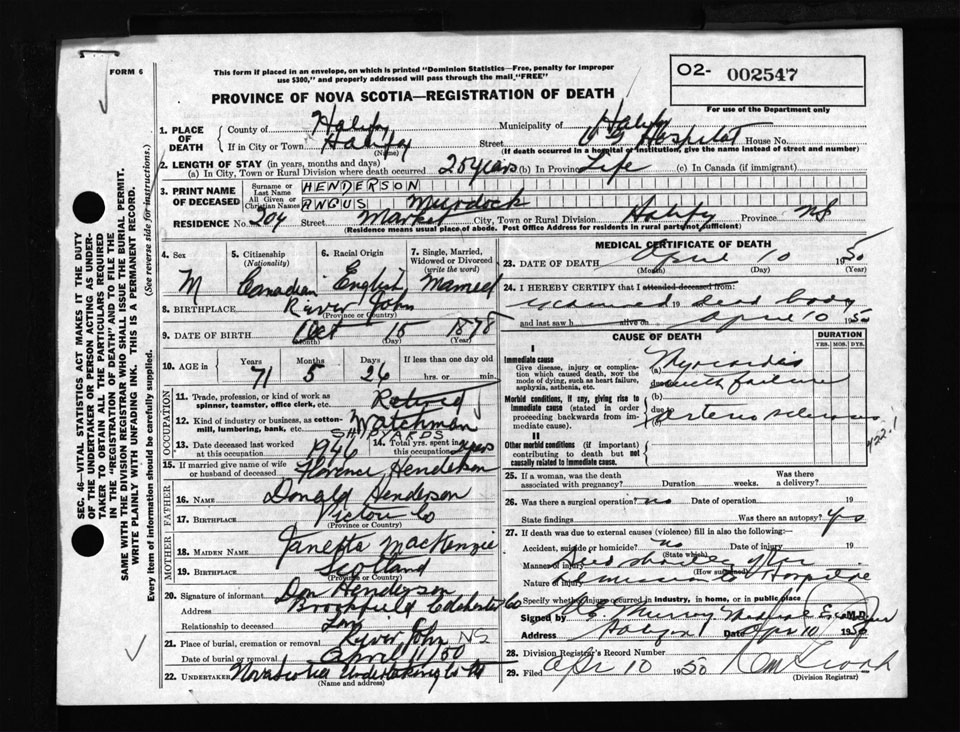 FORM 6
This form if placed in an envelope, on which is printed "Dominion Statistics—Free, penalty for improper
use $300," and properly addressed will pass through the mail "FREE"
O2- 002547
PROVINCE OF NOVA SCOTIA—REGISTRATION OF DEATH
For use of the Department only
1. PLACE OF DEATH
County of Halifx Municipality of Halifx
If in City or Town Halifx (Name) Street Hospital House No.
(If death occurred in a hospital or institution, give the name instead of street and number)
2. LENGTH OF STAY (in years, months and days)
(a) In City, Town or Rural Division where death occurred 25 years (b) In Province Life (c) In Canada (if immigrant)
3. PRINT NAME OF DECEASED
Surname or Last Name HENDERSON
All Given or Christian Names ANGUS Murdock
RESIDENCE No. 204 Street Market City, Town or Rural Division Halifx Province NS
(Residence means usual place of abode. Post Office Address for residents in rural parts not sufficient)
4. Sex
M
5. Citizenship (Nationality)
Canadian
6. Racial Origin
English
7. Single, Married, Widowed or Divorced (write the word)
Married
8. BIRTHPLACE River John
(Province or Country)
9. DATE OF BIRTH Oct 15 1878
(Month) (Day) (Year)
10. AGE in Years Months Days If less than one day old
71 5 26 hrs. or min.
OCCUPATION
11. Trade, profession, or kind of work as spinner, teamster, office clerk, etc. Retired
12. Kind of industry or business, as cotton-mill, lumbering, bank, etc. Watchman
SHIPYARDS
13. Date deceased last worked at this occupation 1946
14. Total yrs. spent in this occupation yrs
15. If married give name of wife or husband of deceased Florence Henderson
FATHER
16. NAME Donald Henderson
17. BIRTHPLACE Pictou Co
(Province or Country)
MOTHER
18. MAIDEN NAME Janetta MacKenzie
19. BIRTHPLACE Scotland
(Province or Country)
20. Signature of informant Don Henderson
Address Brookfield Colchester Co
Relationship to deceased Son
21. Place of burial, cremation or removal River John NS
Date of burial or removal April 11/50
22. UNDERTAKER Nova Scotia Undertaking Co
(Name and address)
MEDICAL CERTIFICATE OF DEATH
23. DATE OF DEATH April 10 1950
(Month) (Day) (Year)
24. I HEREBY CERTIFY that I attended deceased from
examined 19 dead body
and last saw h alive on April 10 1950
CAUSE OF DEATH
DURATION
YRS. MOS. DYS.
I
Immediate cause
Give disease, injury or complication which caused death, NOT the mode of dying, such as heart failure, asphyxia, asthenia, etc.
(a) Myocarditis
with failure
Morbid conditions, if any, giving rise to immediate cause (stated in order proceeding backwards from immediate cause).
(b)
due to
(c) arterio sclerosis
422.1
II
Other morbid conditions (if important) contributing to death but not causally related to immediate cause.
25. If a woman, was the death associated with pregnancy? Duration weeks. Was there a delivery?
26. Was there a surgical operation? no Date of operation 19
State findings Was there an autopsy? Yes
27. If death was due to external causes (violence) fill in also the following:
Accident, suicide or homicide? no Date of injury 19
(State which)
Manner of injury Died shortly after
(How sustained)
Nature of injury admission to Hospital
Specify whether injury occurred in industry, in home, or in public place
Signed by Murray Medical Examiner M.D.
Address Halifax Date Apr 10 1950
28. Division Registrar's Record Number
29. Filed Apr 10 1950
(Division Registrar)
SEC. 46—VITAL STATISTICS ACT MAKES IT THE DUTY
OF THE UNDERTAKER OR PERSON ACTING AS UNDER-
TAKER TO OBTAIN ALL THE PARTICULARS REQUIRED
IN THE "REGISTRATION OF DEATH" AND TO FILE THE
SAME WITH THE DIVISION REGISTRAR WHO SHALL ISSUE THE BURIAL PERMIT.
WRITE PLAINLY WITH UNFADING INK. THIS IS A PERMANENT RECORD.
Every item of information should be carefully supplied. (See reverse side for instructions.)